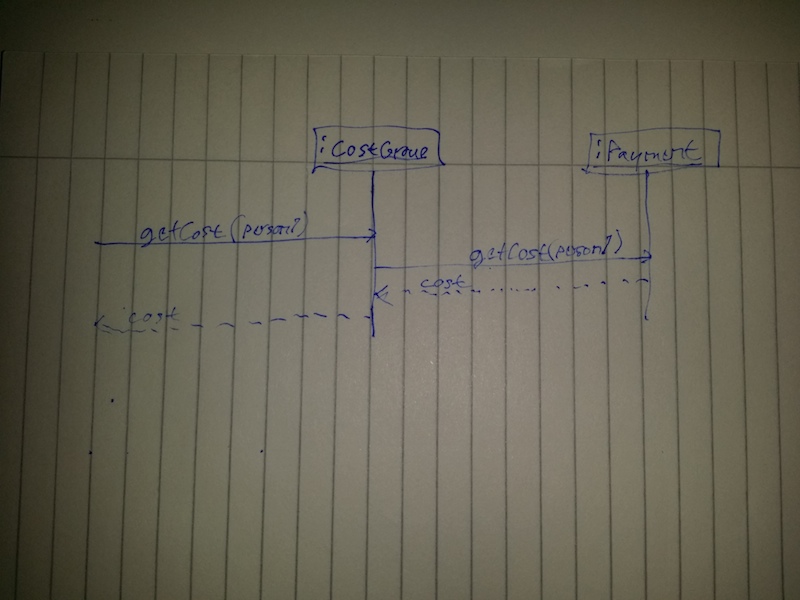 :CostGroup
:Payment
getCost(person1)
getCost(person1)
cost
cost